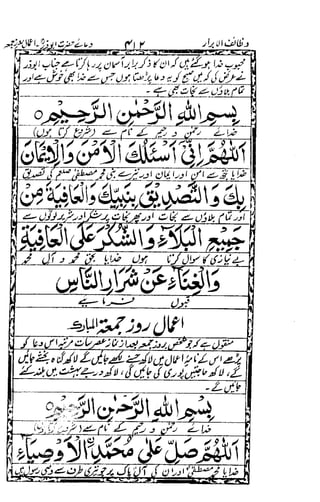 وظائف الابرار ۴۱۲ دعائے حضرت ابوذرؓ، اعمال روز جمعہ
محبوب خدا ہوگئے ہیں کہ ان کا ذکر برابر آسمان پر رہا کرتا ہے جناب ابوذر
نے عرض کی کہ میں صبح کو یہ دعا پڑھتا ہوں جس سے خدا بھی خوش ہے اور
تمام بلاؤں سے نجات بھی ہے۔
بِسْمِ اللهِ الرَّحْمٰنِ الرَّحِيْمِ
خدائے رحمٰن و رحیم کے نام سے (شروع کرتا ہوں)
اَللّٰهُمَّ اِنِّيْ اَسْئَلُكَ الْاَمْنَ وَالْاِيْمَانَ
خدایا تجھ سے امن اور ایمان اور تیرے نبی محمد مصطفیٰ صلعم کی تصدیق
بِكَ وَالتَّصْدِيْقَ بِنَبِيِّكَ وَالْعَافِيَةَ مِنْ
اور تمام بلاؤں سے نجات اور پھر نجات پر شکر اور شریر لوگوں سے
جَمِيْعِ الْبَلَاءِ وَالشُّكْرَ عَلَى الْعَافِيَةِ
بے نیازی کا سوال کرتا ہوں خدایا بحق محمد و آل محمد
وَالْغِنَاءَ عَنْ شِرَارِ النَّاسِ
قبول فرما ہے
اعمال روز جمعۃ المبارک
منقول ہے کہ جو شخص بروز جمعہ بعد از نماز عصر سات مرتبہ اس دعا کو
پڑھے اس کے نامۂ اعمال میں لاکھ حسنے لکھے جائیں گے لاکھ گناہ بخشے جائیں
گے، لاکھ حاجتیں پوری کی جائیں گی، لاکھ درجے بہشت میں بلند کئے
جائیں گے۔
بِسْمِ اللهِ الرَّحْمٰنِ الرَّحِيْمِ
خدائے رحمٰن و رحیم کے نام سے (شروع کرتا ہوں)
اَللّٰهُمَّ صَلِّ عَلٰى مُحَمَّدِ الْاَوْصِيَاءِ
خدایا محمد مصطفیٰ اور ان کی آل پاک پر جو تیری طرف سے وصی رسول ہیں